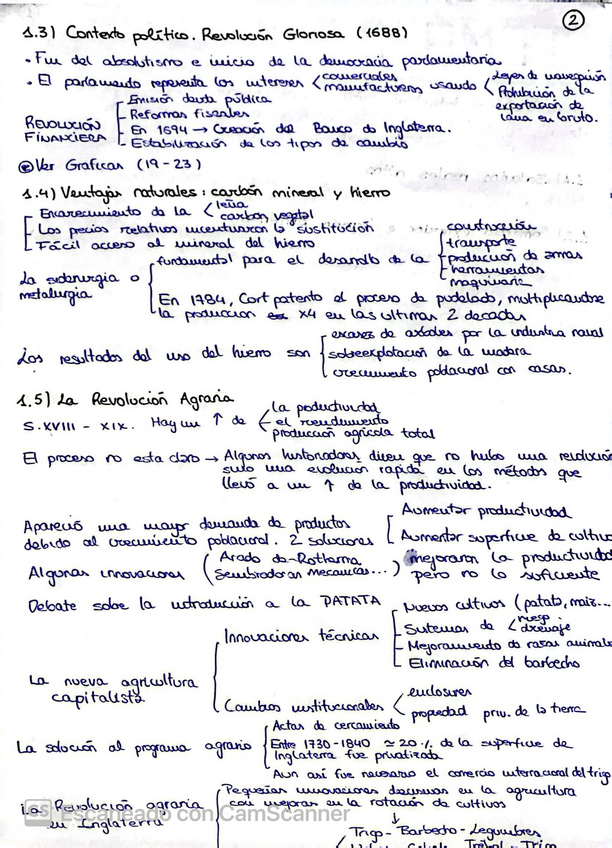 2
1.3) Contexto político. Revolución Gloriosa (1688)
• Fin del absolutismo e inicio de la democracia parlamentaria
• El parlamento representa los intereses < comerciales manufactureros usando < Leyes de navegación Prohibición de la exportación de lana en bruto.
REVOLUCIÓN FINANCIERA
Emisión deuda pública
- Reformas fiscales
- En 1694 → Creación del Banco de Inglaterra.
- Estabilización de los tipos de cambio
Ver Graficas (19-23)
1.4) Ventajas naturales: carbón mineral y hierro
- Encarecimiento de la < leña carbón vegetal
- Los precios relativos incentivaron la sustitución
- Fácil acceso al mineral del hierro
La siderurgia o metalurgia
fundamental para el desarrollo de la
construcción
transporte
producción de armas
herramientas
maquinaria
En 1784, Cort patento el proceso de pudelado, multiplicandose
la produccion x4 en las ultimas 2 decadas
Los resultados del uso del hierro son
escasez de arboles por la industria naval
sobreexplotación de la madera
crecimiento poblacional con casas.
1.5) La Revolución Agraria
S. XVIII - XIX. Hay un ↑ de
la productividad
el rendimiento
producción agrícola total
El proceso no esta claro → Algunos historiadores dicen que no hubo una revolución
sino una evolucion rapida en los métodos que
llevó a un ↑ de la productividad.
Apareció una mayor demanda de productos
debido al crecimiento poblacional. 2 soluciones
Aumentar productividad
Aumentar superficie de cultivo
Algunas innovaciones
Arado de Rotherma
Sembradoras Mecanicas...
mejoraron la productividad
pero no lo suficiente
Debate sobre la introducción a la PATATA
La nueva agricultura capitalista
Innovaciones técnicas
Nuevos cultivos (patata, maiz...
Sistemas de < riego drenaje
Mejoramiento de razas animales
Eliminación del barbecho
Cambios institucionales < enclosures propiedad priv. de la tierra
La solución al programa agrario
Actas de cercamiento
Entre 1730-1840 ≃ 20% de la superficie de
Inglaterra fue privatizada
Aun así fue necesario el comercio internacional del trigo
La Revolución agraria en Inglaterra
Pequeñas innovaciones decisivas en la agricultura
con mejoras en la rotación de cultivos
↓
Trigo - Barbecho - Legumbres
CS Escaneado con CamScanner